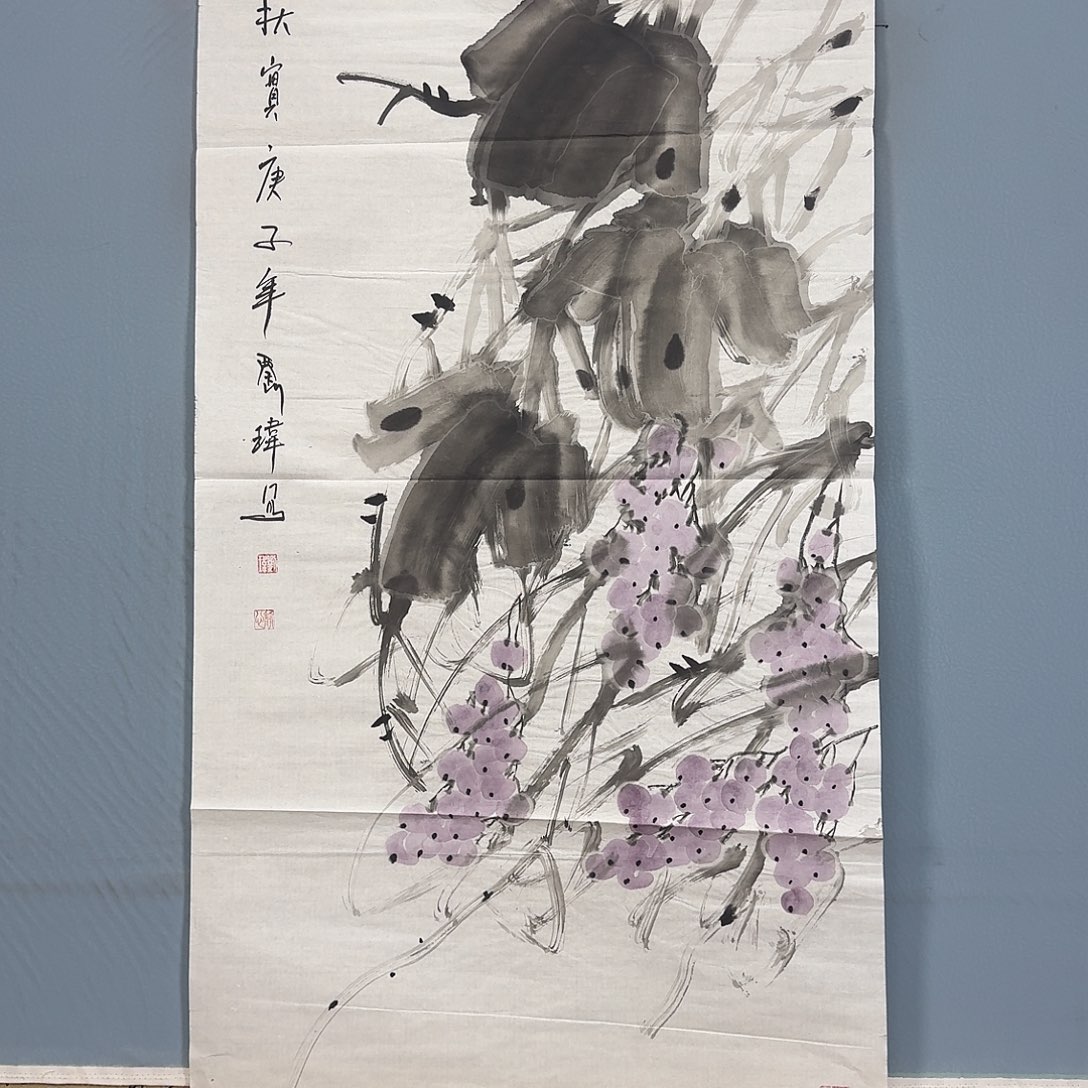 秋實庚子年劉瑋寫